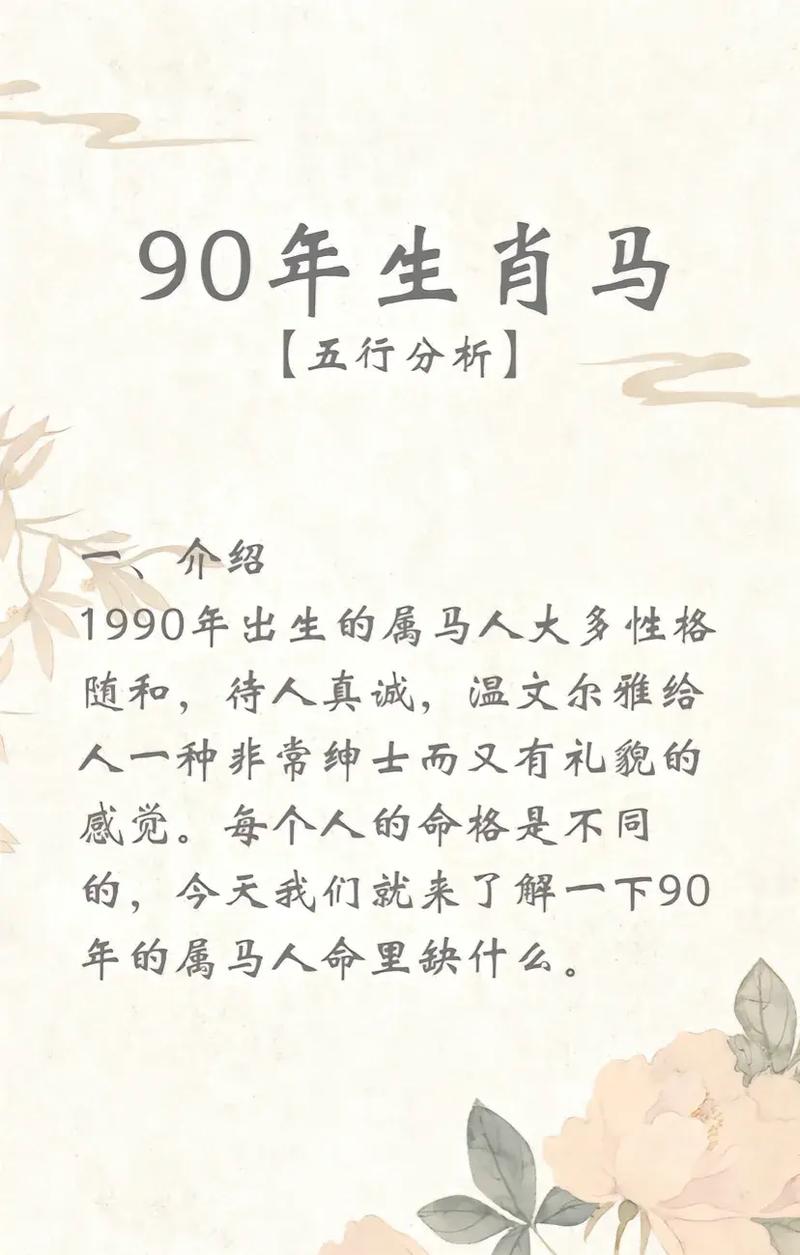 90年生肖马
【五行分析】
一、介绍
1990年出生的属马人大多性格
随和，待人真诚，温文尔雅给
人一种非常绅士而又有礼貌的
感觉。每个人的命格是不同
的，今天我们就来了解一下90
年的属马人命里缺什么。